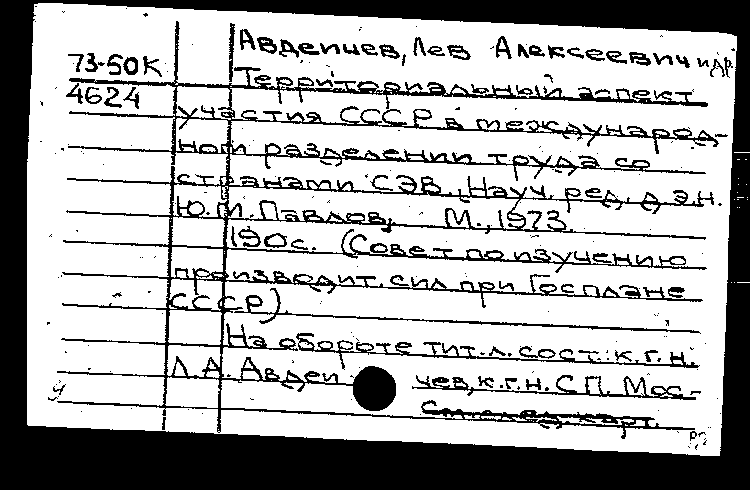 Авдеичев, Лев Алексеевич и др.
73-50К
4624
Территориальный аспект
участия СССР в международ-
ном разделении труда со
странами СЭВ. Науч. ред. д.э.н.
Ю.М. Павлов. М., 1973.
190с. (Совет по изучению
производит. сил при Госплане
СССР).
На обороте тит. л. сост.: к.г.н.
Л.А. Авдеичев, к.г.н. С.П. Мос-
См. след. карт.